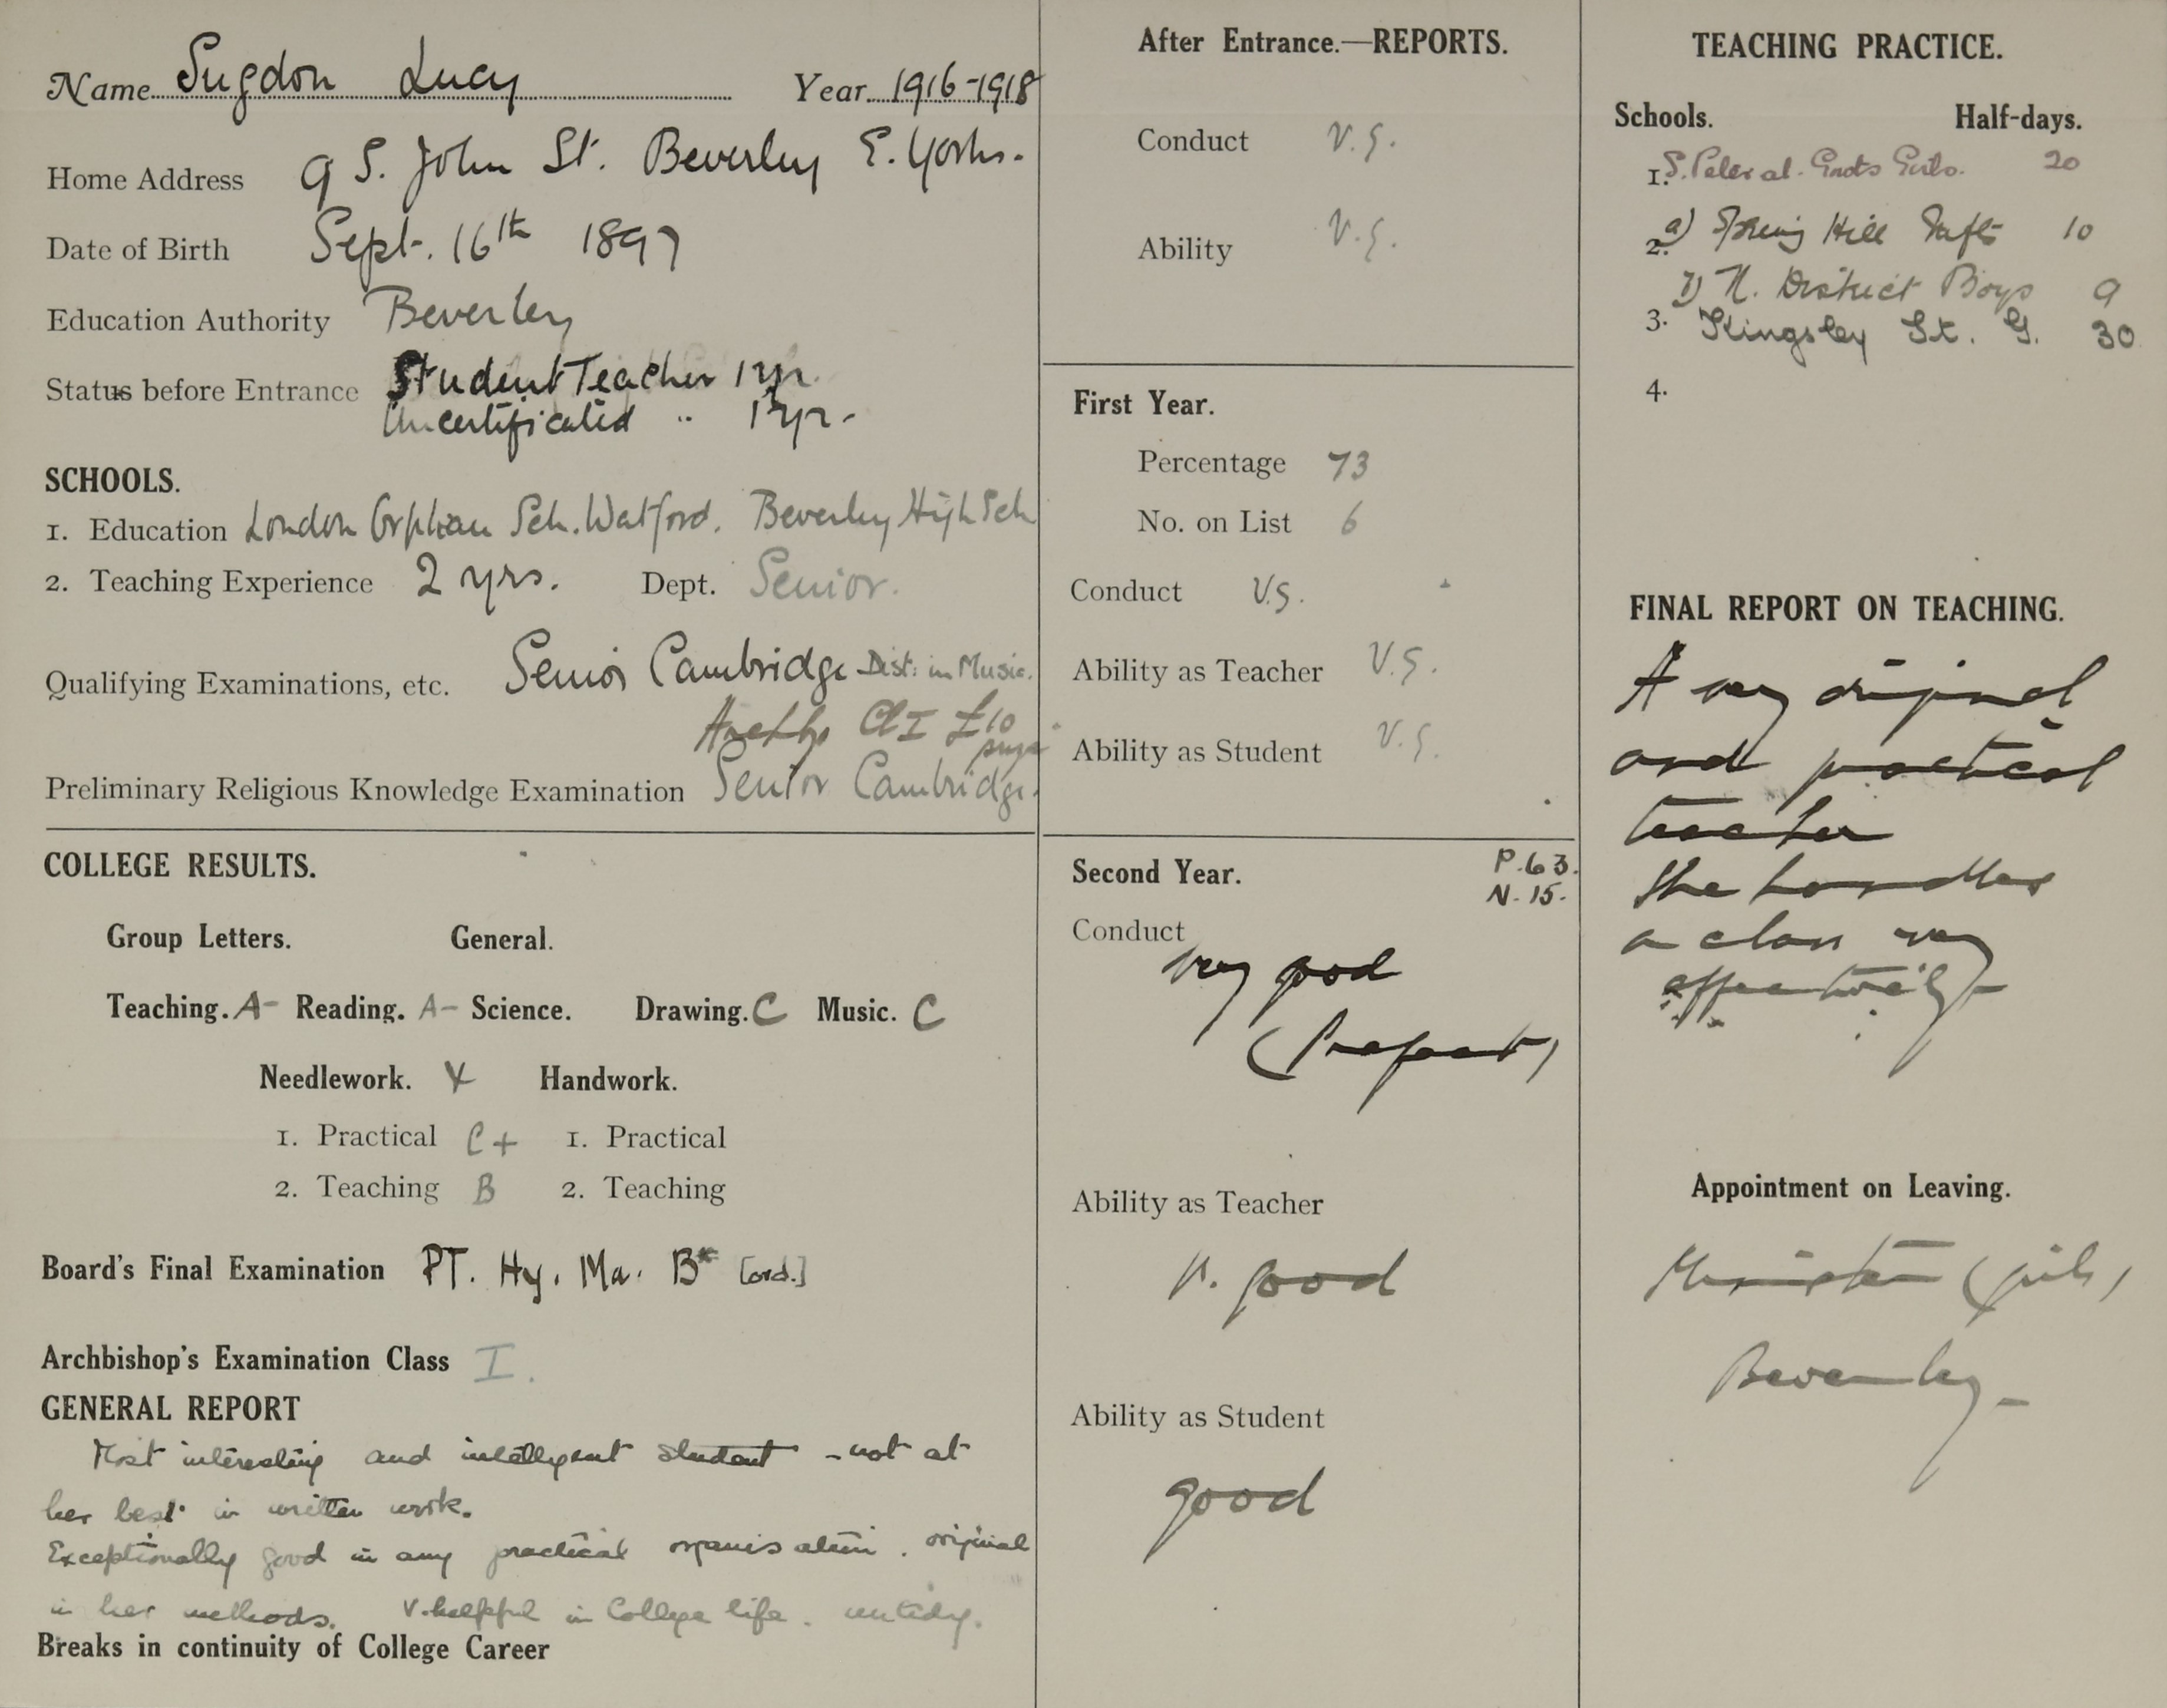 Name Sugdon Lucy Year 1916-1918
Home Address 9 S. John St. Beverley E. Yorks.
Date of Birth Sept. 16th 1897
Education Authority Beverley
Status before Entrance Student Teacher 1 yr.
Uncertificated " 1 yr.
SCHOOLS.
1. Education London Orphan Sch. Watford. Beverley High Sch
2. Teaching Experience 2 yrs. Dept. Senior.
Qualifying Examinations, etc. Senior Cambridge Dist: in Music.
Cl I £10
Preliminary Religious Knowledge Examination Senior Cambridge.
COLLEGE RESULTS.
Group Letters. General.
Teaching. A- Reading. A- Science. Drawing. C Music. C
Needlework. X Handwork.
1. Practical C+ 1. Practical
2. Teaching B 2. Teaching
Board's Final Examination PT. Hy. Ma. B* [ord.]
Archbishop's Examination Class I.
GENERAL REPORT
Most interesting and intelligent student - not at
her best in written work.
Exceptionally good in any practical organisation. original
in her methods. V. helpful in College life. untidy.
Breaks in continuity of College Career
After Entrance.—REPORTS.
Conduct V.G.
Ability V.G.
First Year.
Percentage 73
No. on List 6
Conduct V.G.
Ability as Teacher V.G.
Ability as Student V.G.
Second Year. P. 63.
N. 15.
Conduct
Very good
(Prefect)
Ability as Teacher
V. good
Ability as Student
good
TEACHING PRACTICE.
Schools. Half-days.
1. S. Peter at Gowts Girls. 20
2. a) Spring Hill Infts 10
b) N. District Boys 9
3. Kingsley St. G. 30
4.
FINAL REPORT ON TEACHING.
A very original
and practical
teacher
She handles
a class very
effectively-
Appointment on Leaving.
Minster (girls)
Beverley-